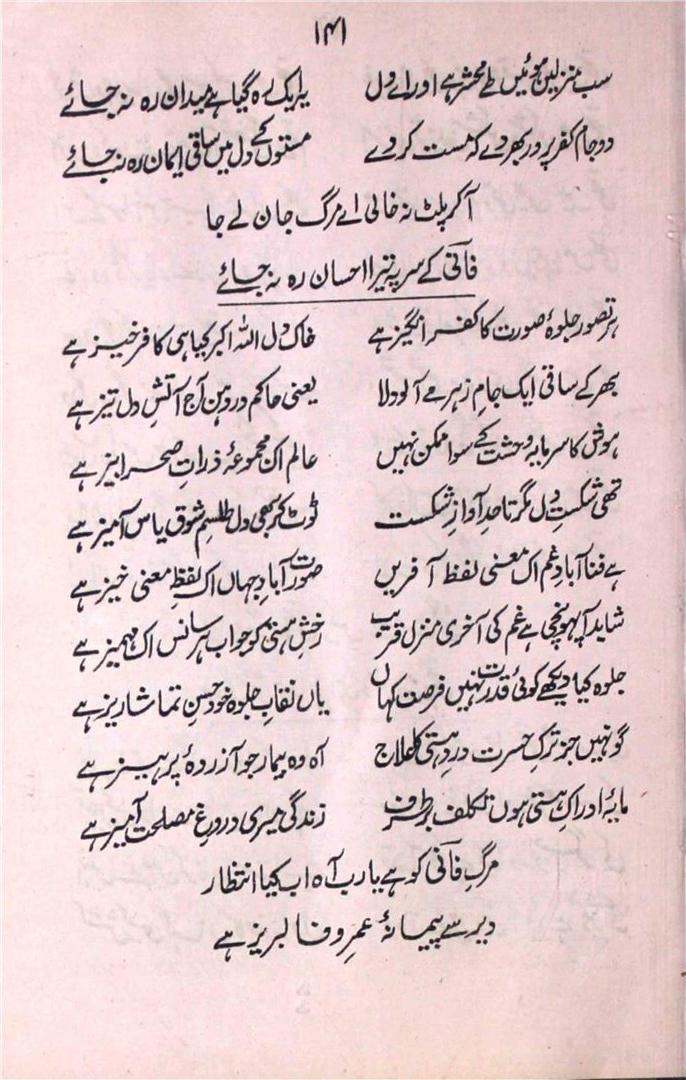 ۱۴۱
سب منزلیں ہوئیں طے محشر ہے اور اے دل یہ ایک رہ گیا ہے میدان رہ نہ جائے
دو جام کفر پرور بھر دے کہ مست کر دے مستوں کے دل میں ساقی ایمان رہ نہ جائے
آکر پلٹ نہ خالی اے مرگ جان لے جا
فانیؔ کے سر پہ تیرا احسان رہ نہ جائے
ہر تصور جلوۂ صورت کا کفر انگیز ہے خاک دل اللہ اکبر کیا ہی کافر خیز ہے
بھر کے ساقی ایک جامِ زہر مے آلود لا یعنی حاکم در دہن آج آتشِ دل تیز ہے
ہوش کا سرمایہ وحشت کے سوا ممکن نہیں عالم اک مجموعۂ ذراتِ صحرا بیز ہے
تھی شکستِ دل مگر تا حدِ آوازِ شکست ٹوٹ کر بھی دل طلسمِ شوق یاس آمیز ہے
ہے فنا آبادِ غم اک معنی لفظ آفریں صورت آبادِ جہاں اک لفظِ معنی خیز ہے
شاید آ پہونچی ہے غم کی آخری منزل قریب رخشِ ہستی کو جواب ہر سانس اک مہمیز ہے
جلوہ کیا دیکھے کوئی قدرت نہیں فرصت کہاں یاں نقابِ جلوہ خود حسنِ تماشا ریز ہے
گو نہیں جز ترکِ حسرت دردِ ہستی کا علاج آہ وہ بیمار جو آزردۂ پرہیز ہے
مایۂ ادراکِ ہستی ہوں تکلف برطرف زندگی میری دروغِ مصلحت آمیز ہے
مرگِ فانیؔ کو ہے یارب آہ اب کیا انتظار
دیر سے پیمانۂ عمرِ وفا لبریز ہے